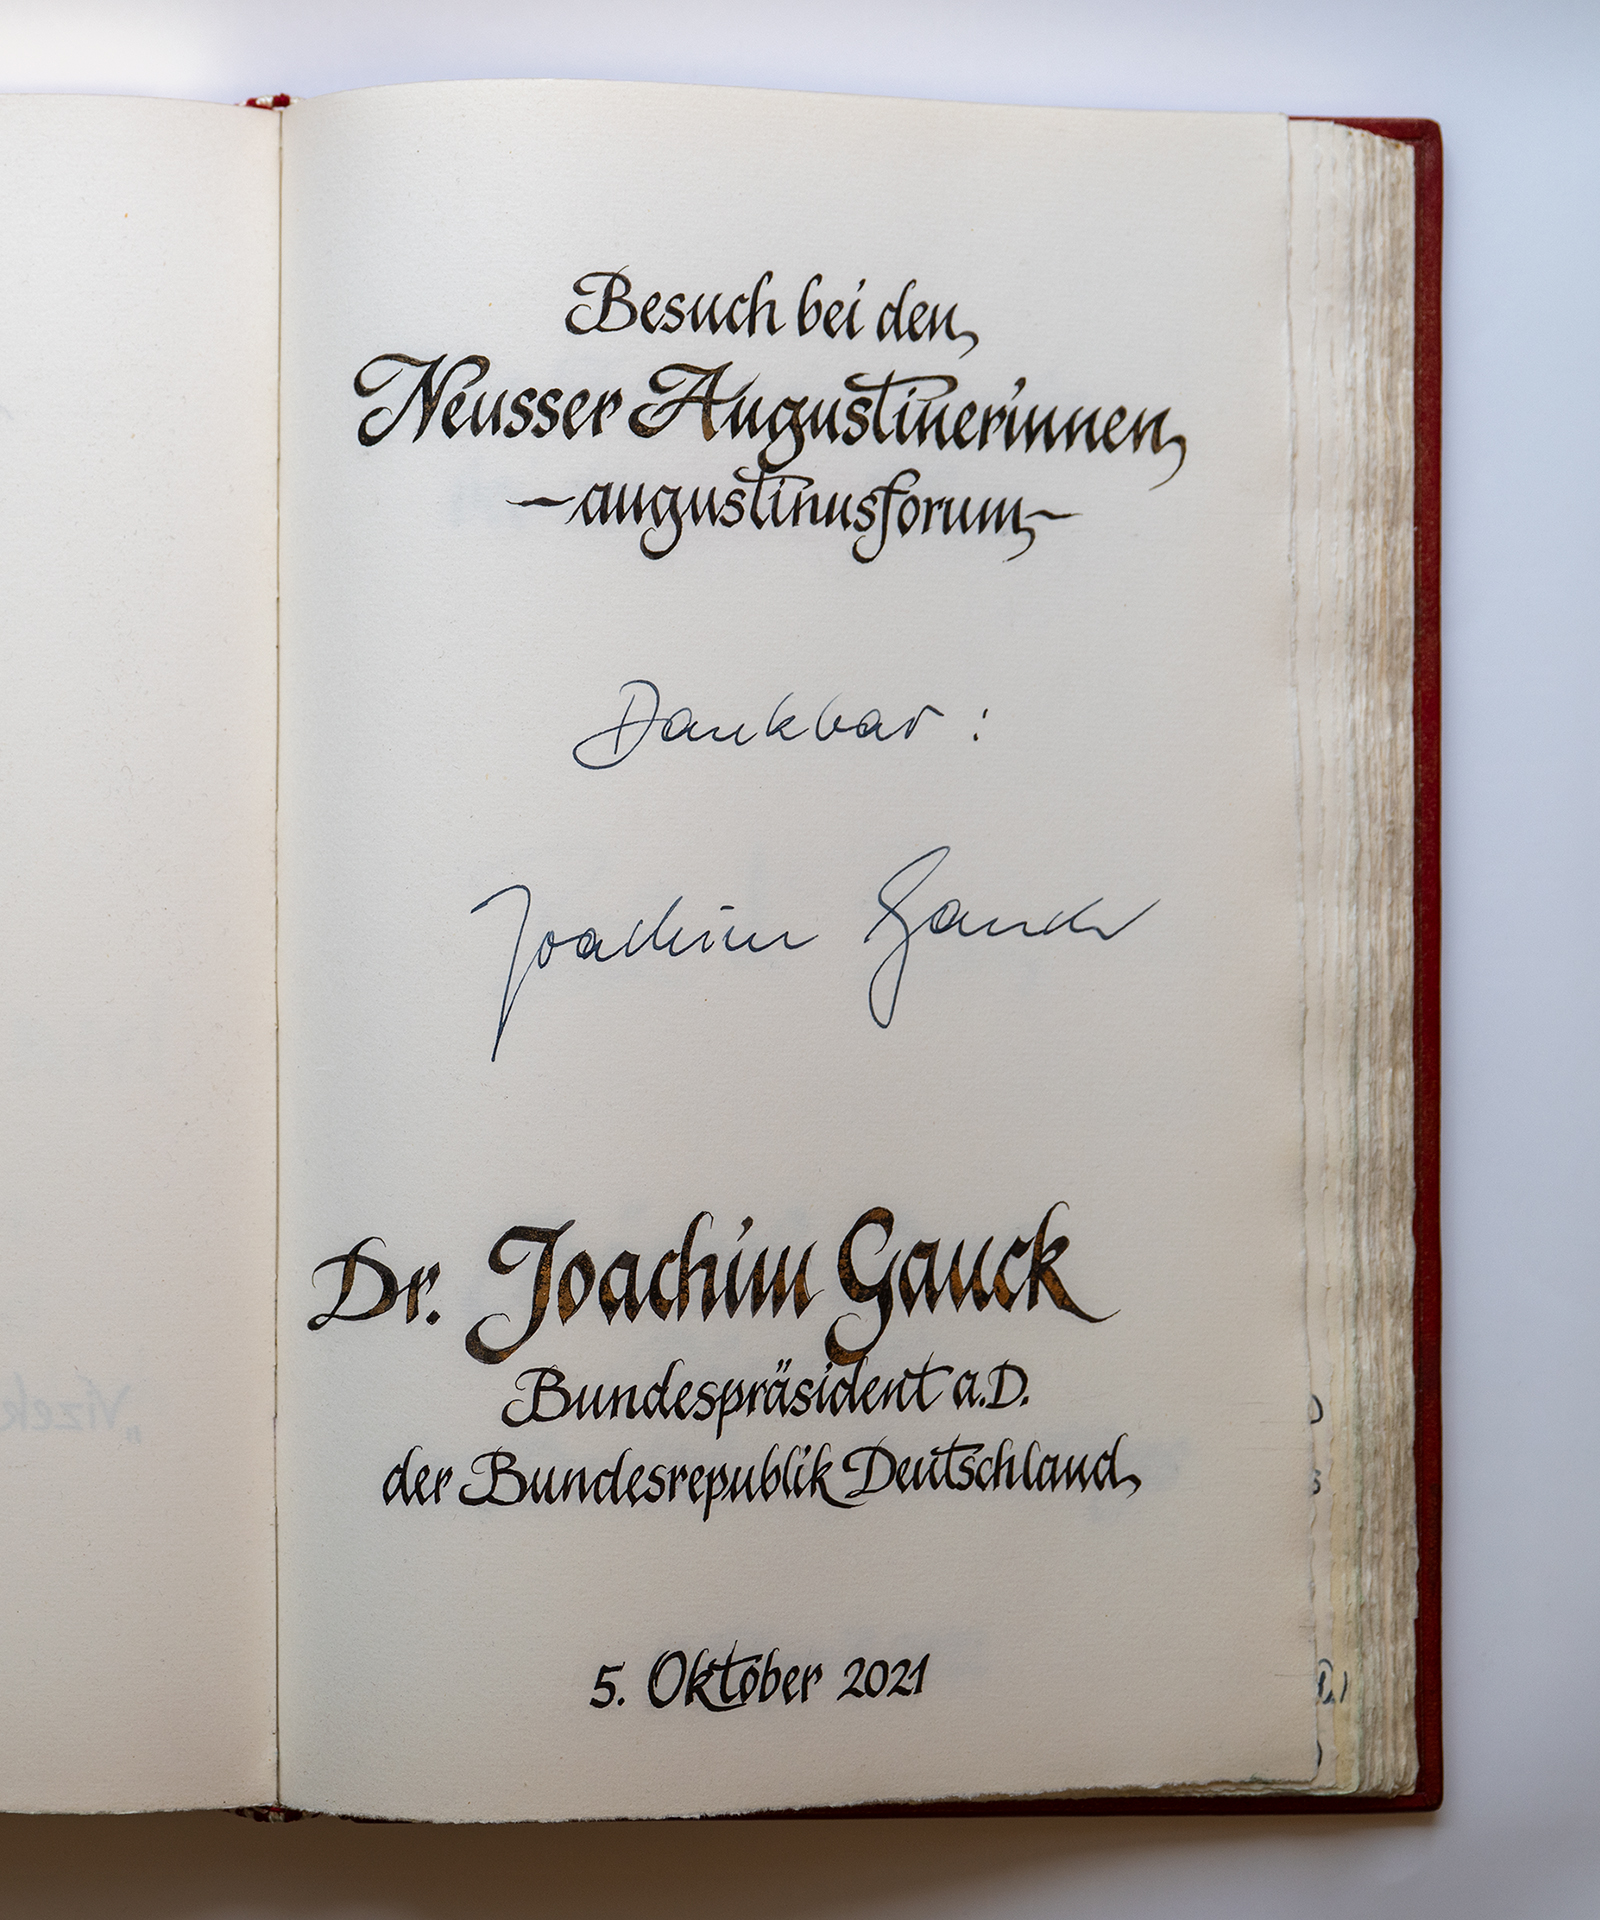 Besuch bei den
Neusser Augustinerinnen
– augustinusforum –
Dankbar :
Joachim Gauck
Dr. Joachim Gauck
Bundespräsident a.D.
der Bundesrepublik Deutschland
5. Oktober 2021